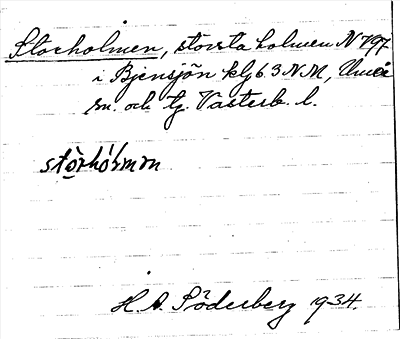 Storholmen, största holmen N 797
i Bjensjön klg 6.3 NNM, Umeå
sn. och tg. Västerb. l.
stòrhólmɘn
H. A. Söderberg 1934.